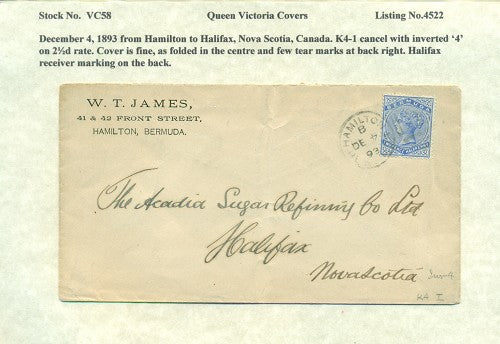 Stock No. VC58 Queen Victoria Covers Listing No.4522
December 4, 1893 from Hamilton to Halifax, Nova Scotia, Canada. K4-1 cancel with inverted ‘4’
on 2½d rate. Cover is fine, as folded in the centre and few tear marks at back right. Halifax
receiver marking on the back.
W. T. JAMES,
41 & 42 FRONT STREET,
HAMILTON, BERMUDA.
HAMILTON
B
DE 4
93
BERMUDA
The Acadia Sugar Refining Co Ltd
Halifax
Novascotia
K4 I